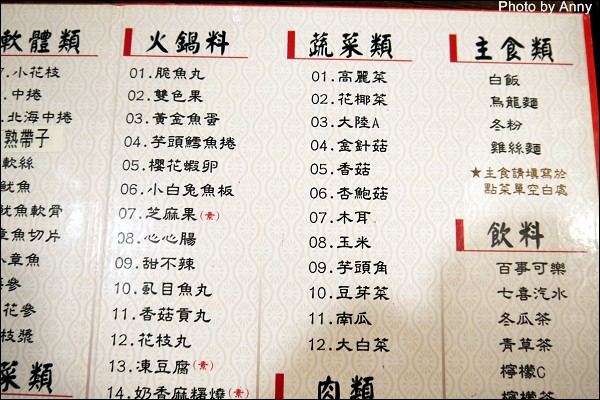 Photo by Anny
軟體類
7.小花枝
.中捲
.北海中捲
熟帶子
軟絲
魷魚
魷魚軟骨
章魚切片
章魚
參
花參
枝漿
菜類
火鍋料
01.脆魚丸
02.雙色果
03.黃金魚蛋
04.芋頭鱈魚捲
05.櫻花蝦卵
06.小白兔魚板
07.芝麻果(素)
08.心心腸
09.甜不辣
10.虱目魚丸
11.香菇貢丸
12.花枝丸
13.凍豆腐(素)
14.奶香麻糬燒(素)
蔬菜類
01.高麗菜
02.花椰菜
03.大陸A
04.金針菇
05.香菇
06.杏鮑菇
07.木耳
08.玉米
09.芋頭角
10.豆芽菜
11.南瓜
12.大白菜
肉類
主食類
白飯
烏龍麵
冬粉
雞絲麵
★主食請填寫於
點菜單空白處
飲料
百事可樂
七喜汽水
冬瓜茶
青草茶
檸檬C
檸檬茶